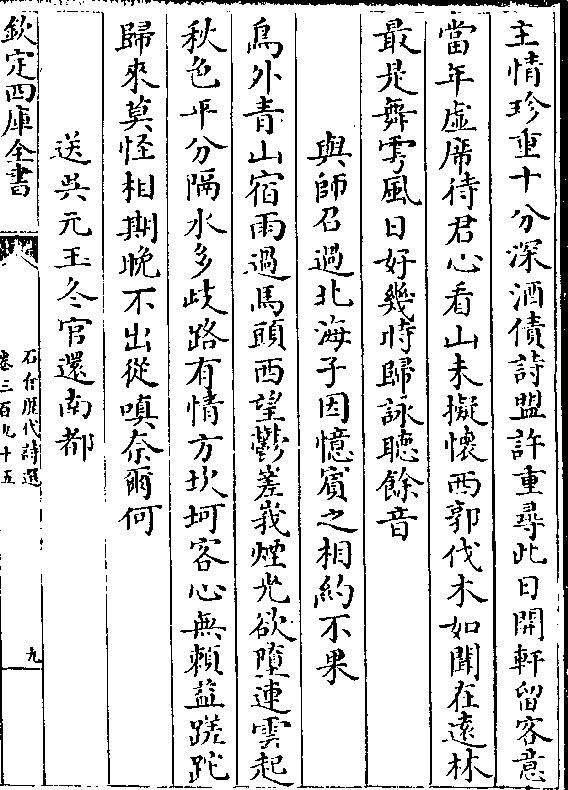 主情珍重十分深酒債詩盟許重尋此日開軒留客意
當年虛席待君心看山未擬懷西郭伐木如聞在遠林
最是舞雩風日好幾時歸詠聽餘音
與師召過北海子因憶賓之相約不果
鳥外青山宿雨過馬頭西望鬱嵯峩煙光欲墮連雲起
秋色平分隔水多歧路有情方坎坷客心無賴益蹉跎
歸來莫怪相期晚不出從嗔奈爾何
送吳元玉冬官還南都
欽定四庫全書
石倉歷代詩選
卷三百九十五
九